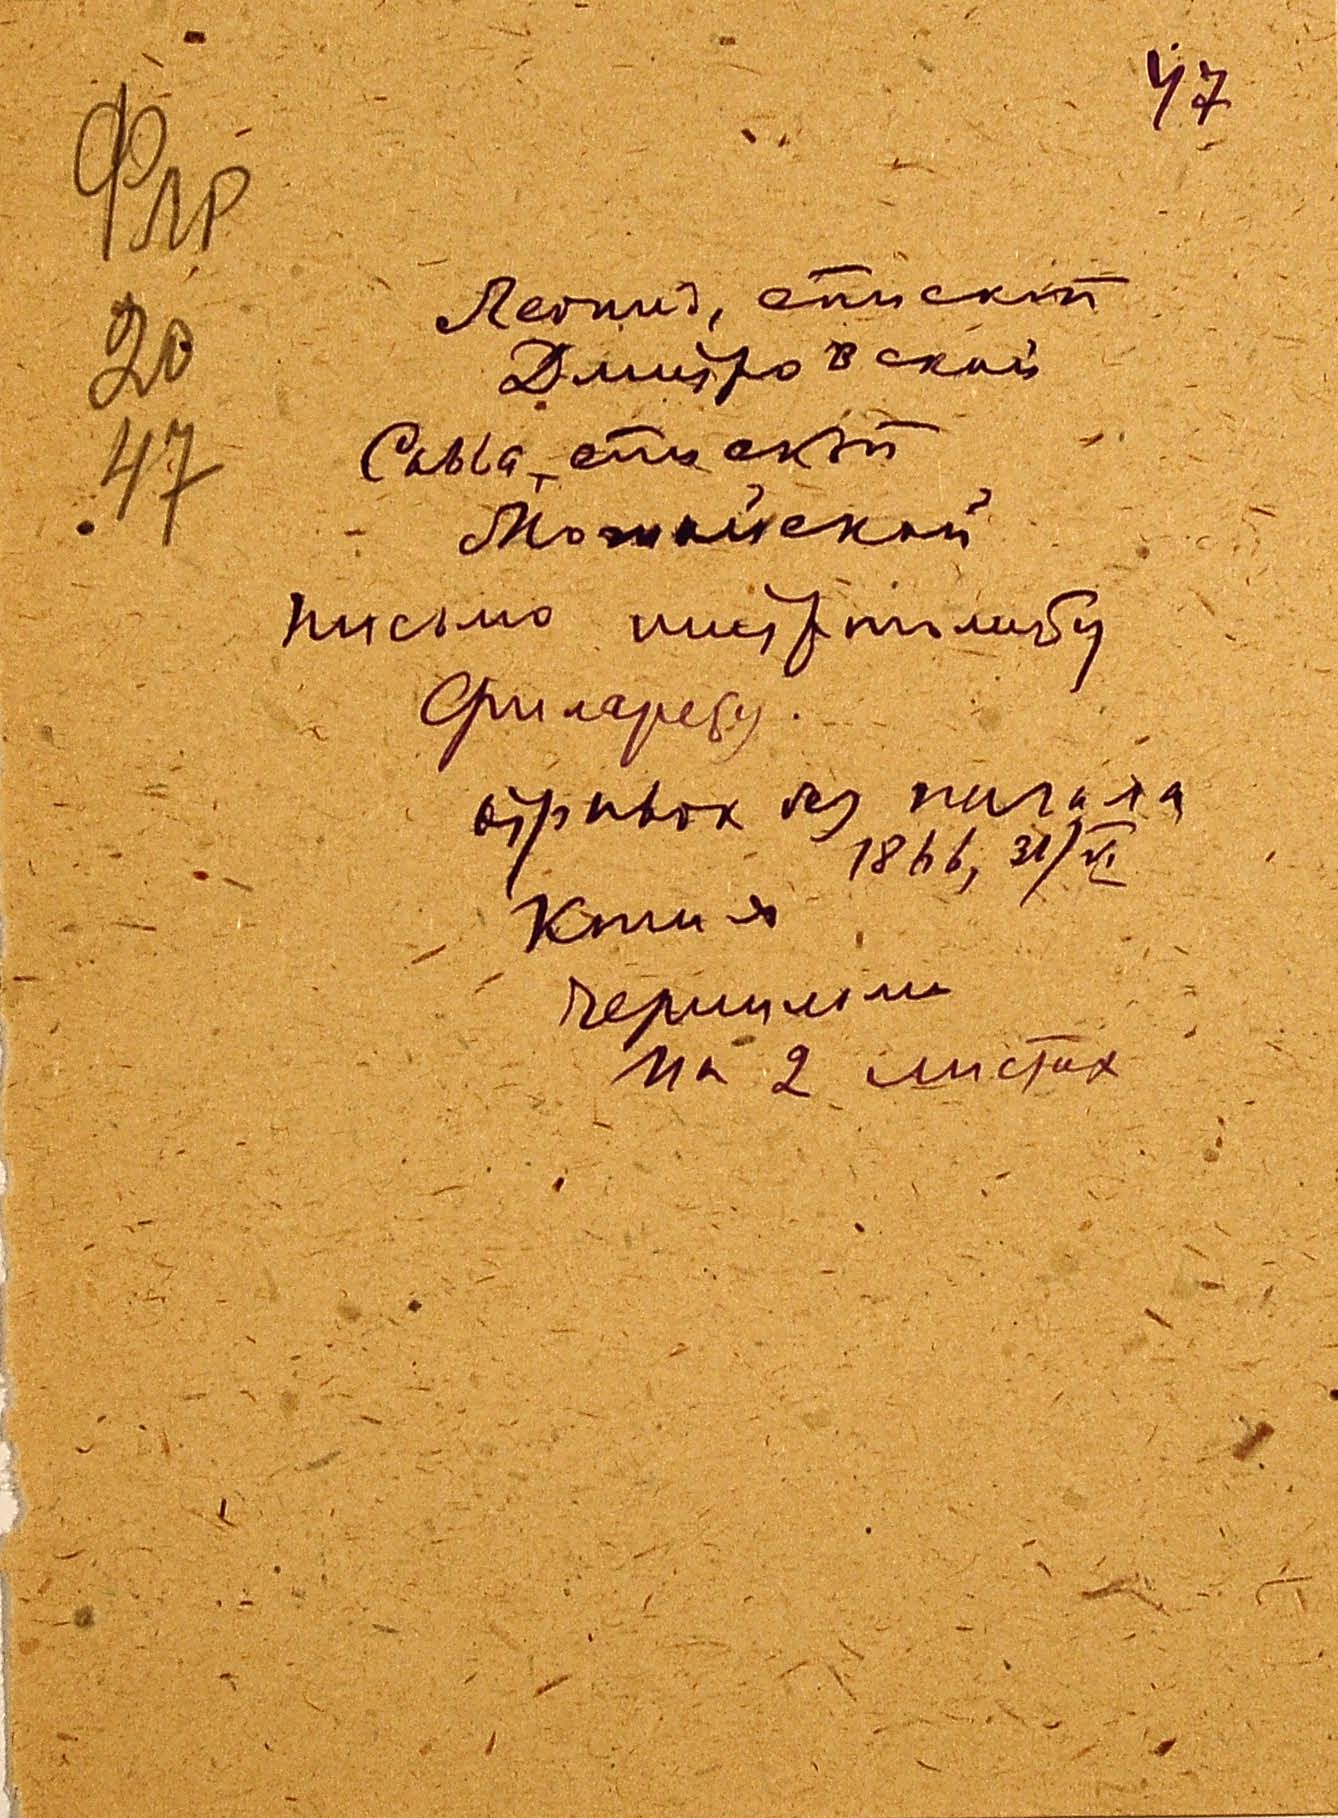 47
ФЛР
20
47
Леонид, епископ
Дмитровский
Савва, епископ
Можайский
письмо митрополиту
Филарету.
отрывок без начала
1866, 31/VI
Копия
чернилами
на 2 листах